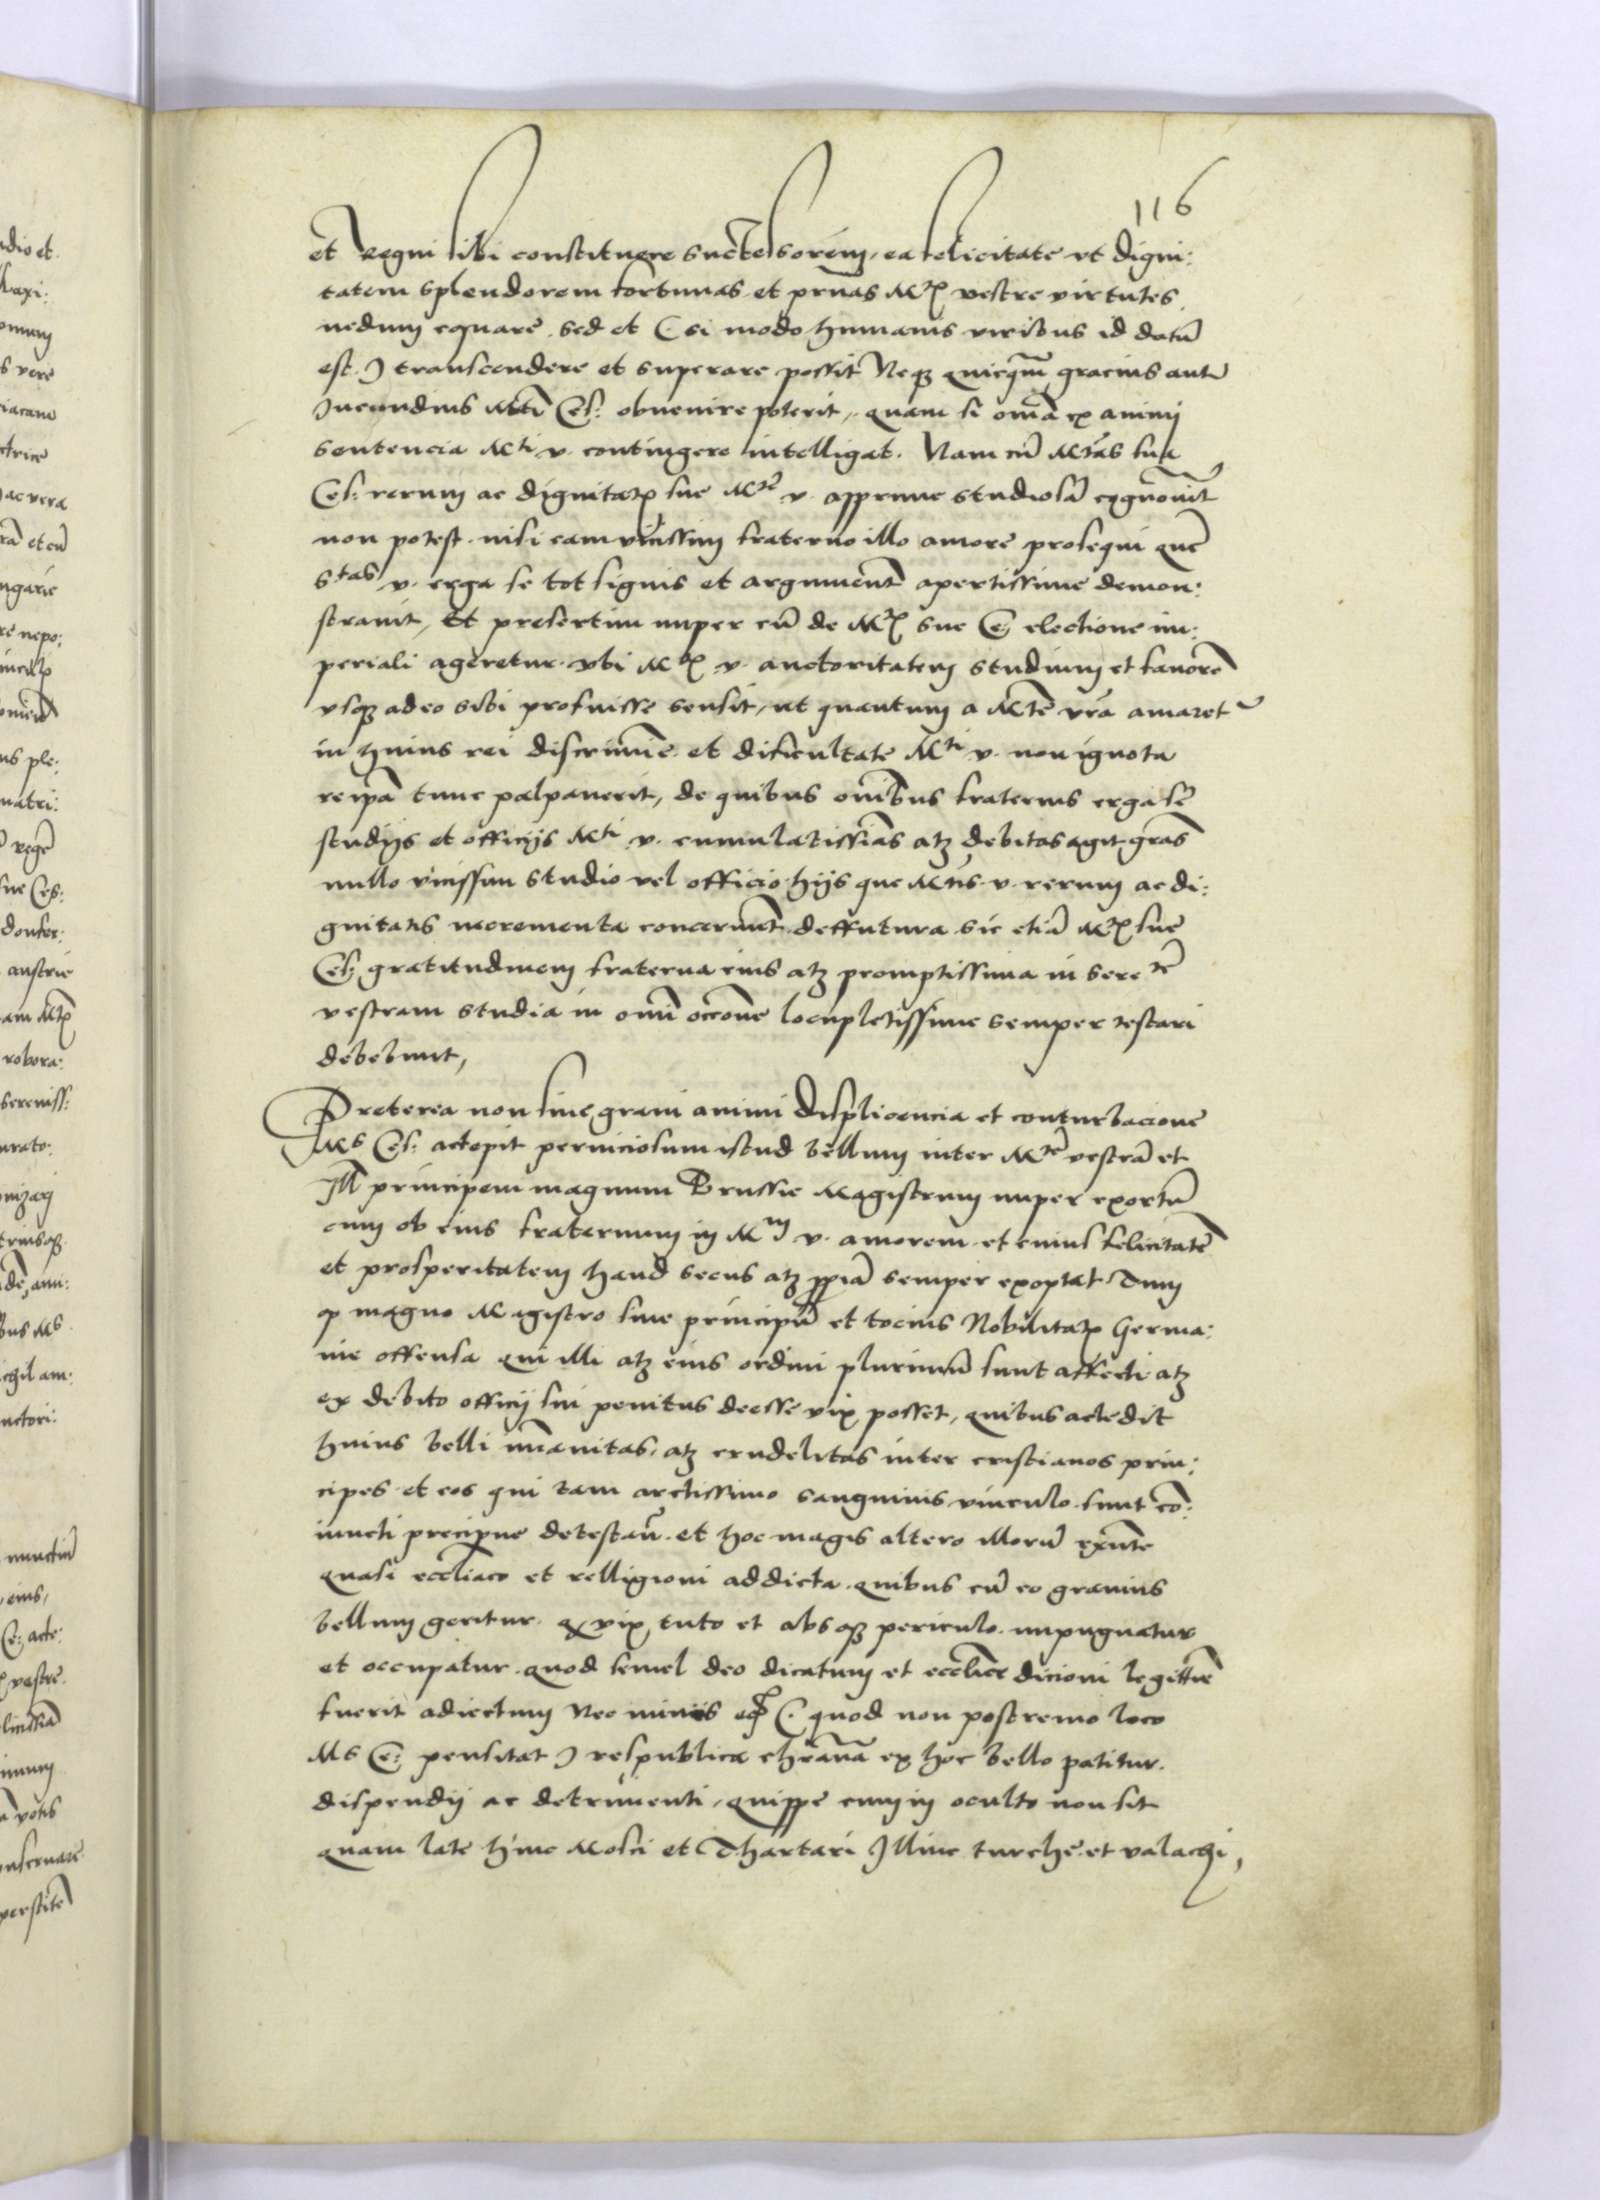 116
et Regni sibi constituere successorem, ea felicitate ut digni:
tatem splendorem fortunas et pruas Mtis vestre virtutes
nedum equare sed et (si modo humanis viribus id datū
est) transcendere et superare possit Neqʒ quicqm̄ gracius aut
Jucundius Mti Ces: obuenire poterit, quam si omīa ex animi
sentencia Mti v. contingere intelligat. Nam cū Mtas sua
Ces: rerum ac dignitatis sue Mte v. apprime studiosā cognouit
non potest nisi eam vicissim fraterno illo amore prosequi quē
Stas v. erga se tot signis et argument apertissime demon:
strauit, Et presertim nuper cū de Mtis sue Ces electione im:
periali ageretur vbi Mtis v. auctoritatem studium et fauorē
vsqʒ adeo sibi profuisse sensit, ut quantum a Mte vrā amaret
in huius rei discrimīe et dificultate Mti v. non ignota
re ipā tunc palpauerit, de quibus omībus fraternis erga sē
studijs et officijs Mti v. cumulatissīas atʒ debitas agit grās
nullo vicissim studio vel officio hijs que Mtis v. rerum ac di:
gnitatis incrementa concernūt deffutura sic etiā Mtis sue
Ces: gratitudinem fraterna eius atʒ promptissima in Sere te
vestram studia in omī occōne locupletissime semper testari
debebunt,
Preterea non sine graui animi displicencia et conturbacione
Ms Ces: accepit perniciosum istud bellum inter Mte vestrā et
Ill principem magnum Prussie Magistrum nuper exortū
cum ob eius fraternum in Mm v. amorem et cuius felicitatē
et prosperitatem haud secus atʒ ppriā semper exoptat Tum
ꝙ magno Magistro sine principū et tocius Nobilitatis Germa:
nie offensa qui illi atʒ eius ordini plurimū sunt affecti atʒ
ex debito officij sui penitus deesse vix posset, quibus accedit
huius belli īmanitas, atʒ crudelitas inter cristianos prin:
cipes et eos qui tam arctissimo sanguinis vinculo sunt cō:
iuncti precipue detestan. et hoc magis altero illorū exnte
quasi eccliaco et relligioni addicta quibus cū eo grauius
bellum geritur. ꝙ vix tuto et absqʒ periculo impugnatur
et occupatur quod semel deo dicatum et ecclice dicioni legittīe
fuerit adiectum Nec minus (quod non postremo loco
Ms Ce: pensitat) respublica chrāna ex hoc bello patitur.
dispendij ac detrimenti, quippe cum in oculto non sit
quam late hinc Mosci et Thartari Illinc turche et valachi,